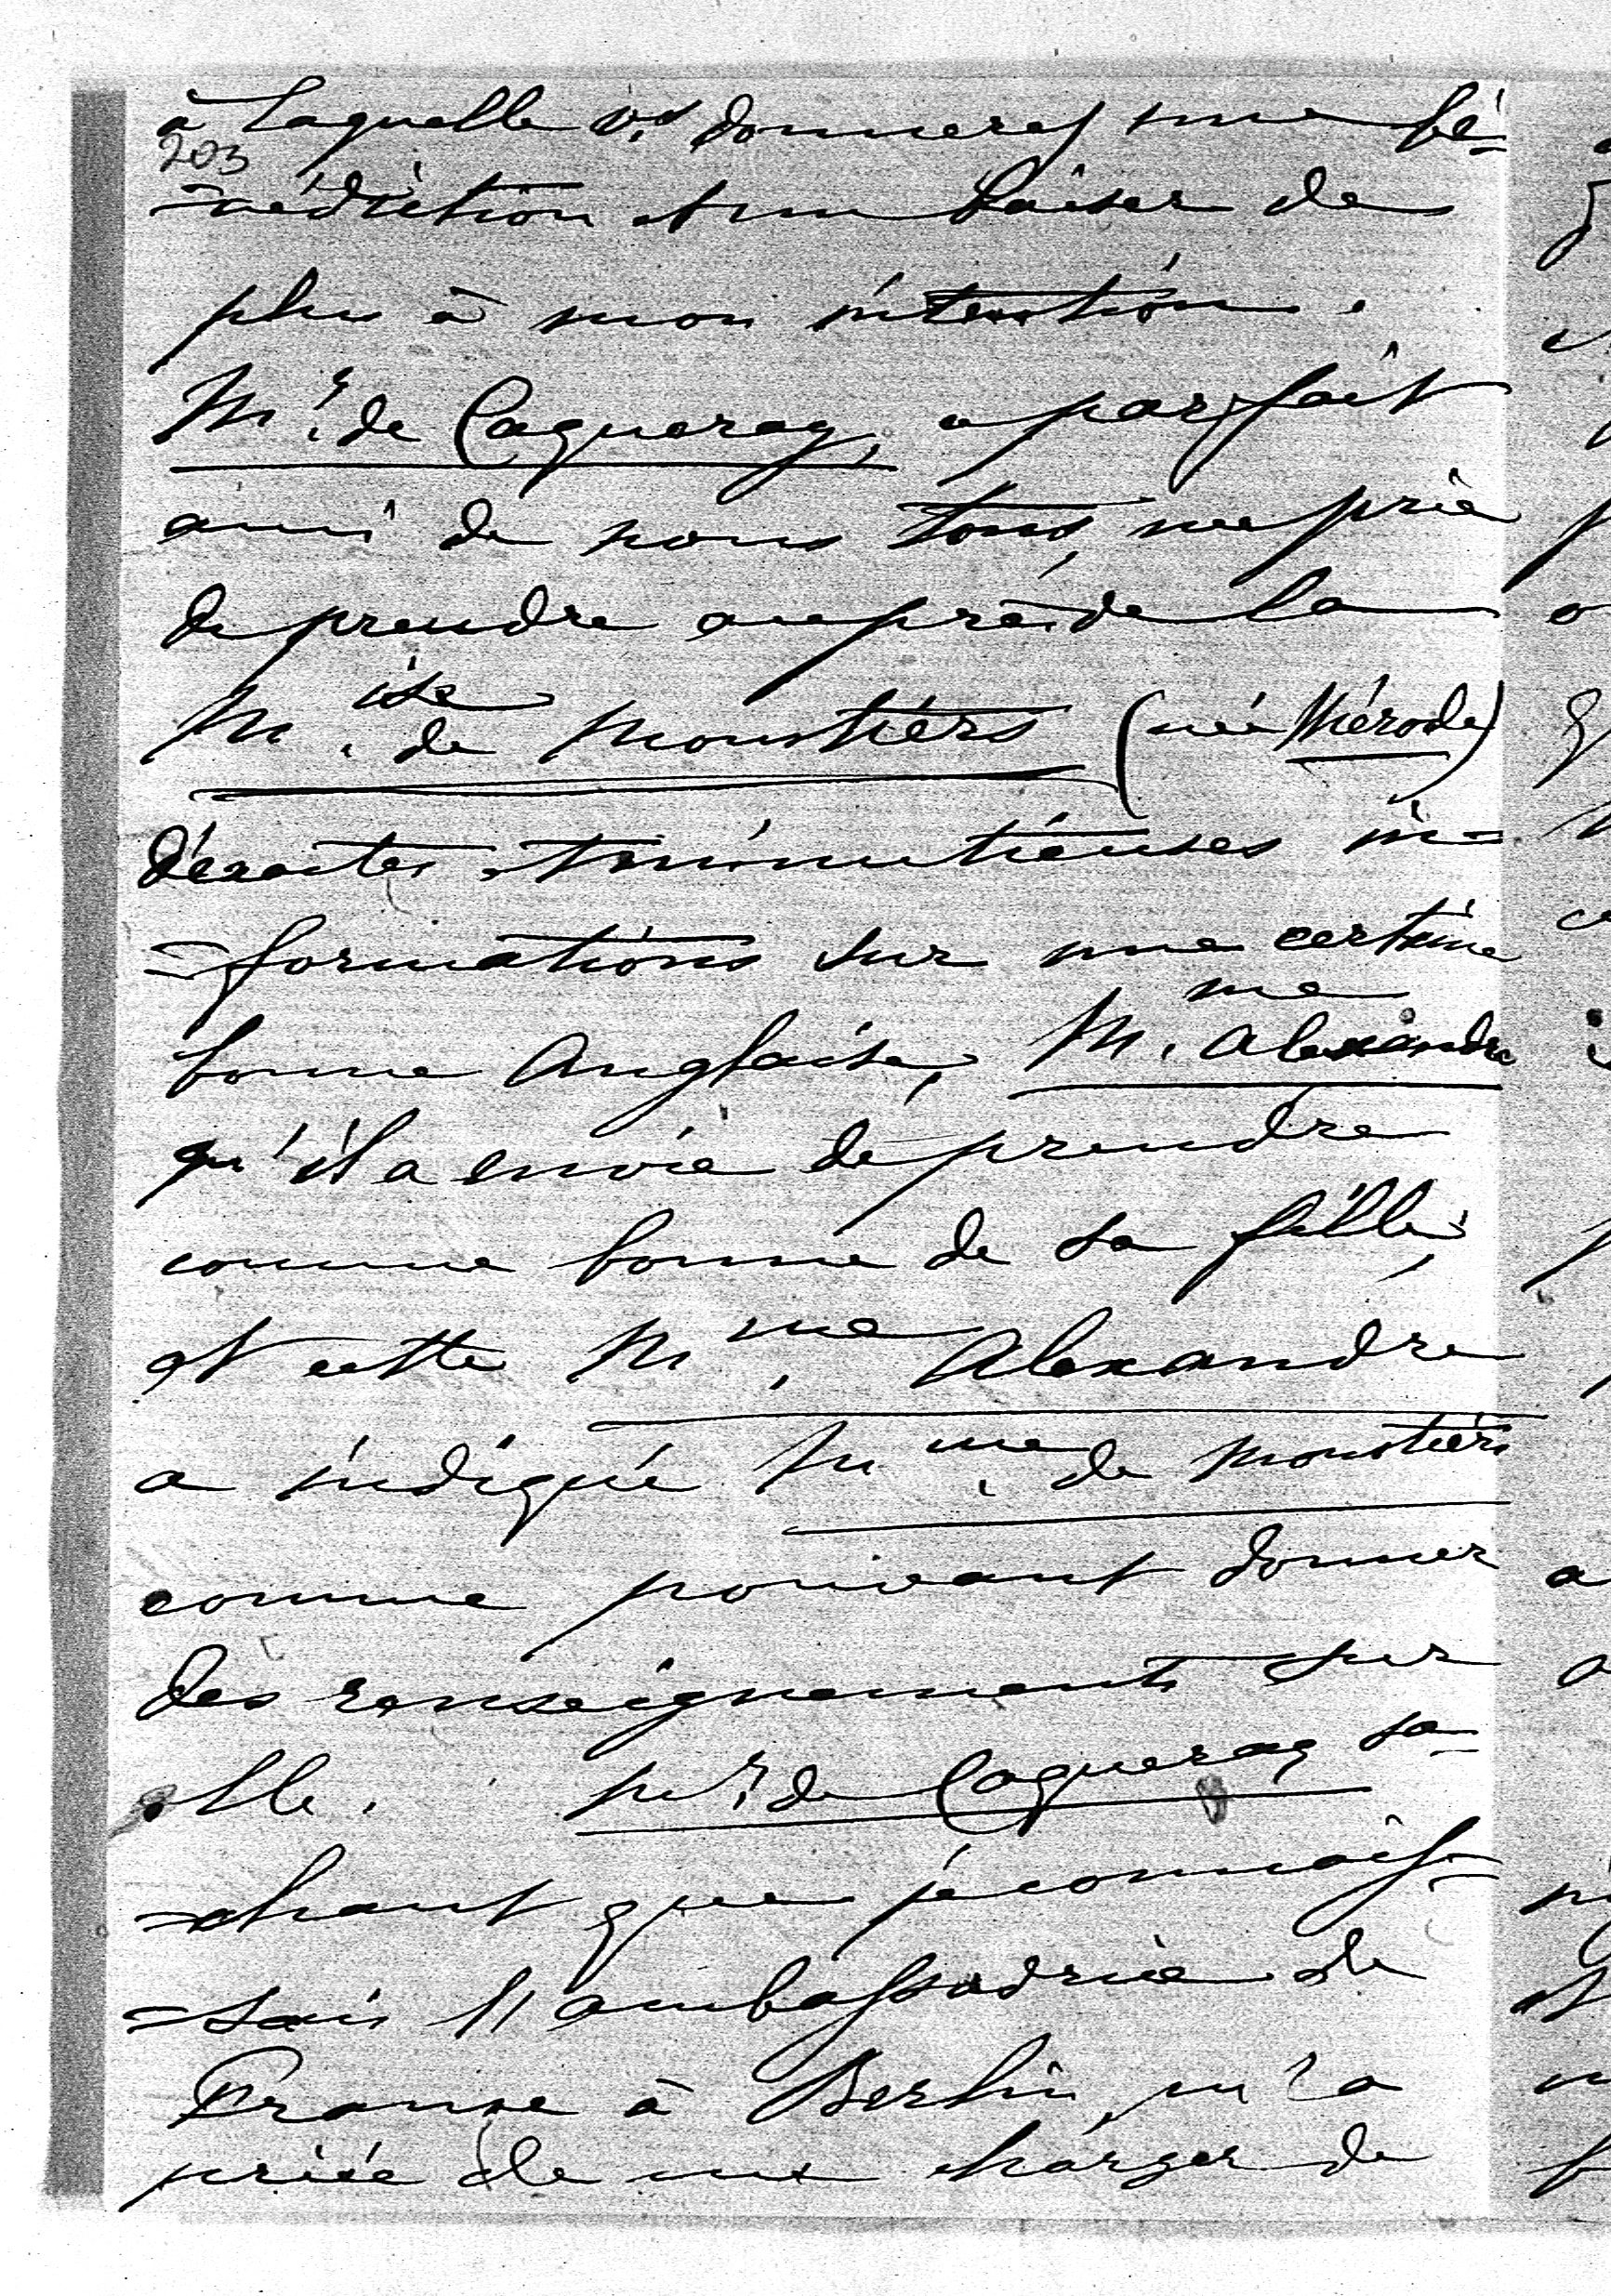 à laquelle vs donnerez une bé-
203
=nédiction et un baiser de
plus à mon intention.
Mr. de Caqueray, ce parfait
ami de nous tous, me prie
de prendre auprès de la
Mise. de Moustiers (née Mérode)
d'exactes et minutieuses in=
=formations sur une certaine
bonne Anglaise, Mme. Alexandre
qu'il a envie de prendre
comme bonne de sa fille,
et cette Mme. Alexandre
a indiqué Mme. de Moustiers
comme pouvant donner
des renseignements sur
elle. Mr. de Caqueray sa-
=chant que je connais-
=sais l'ambassadrice de
France à Berlin m'a
priée de me charger de